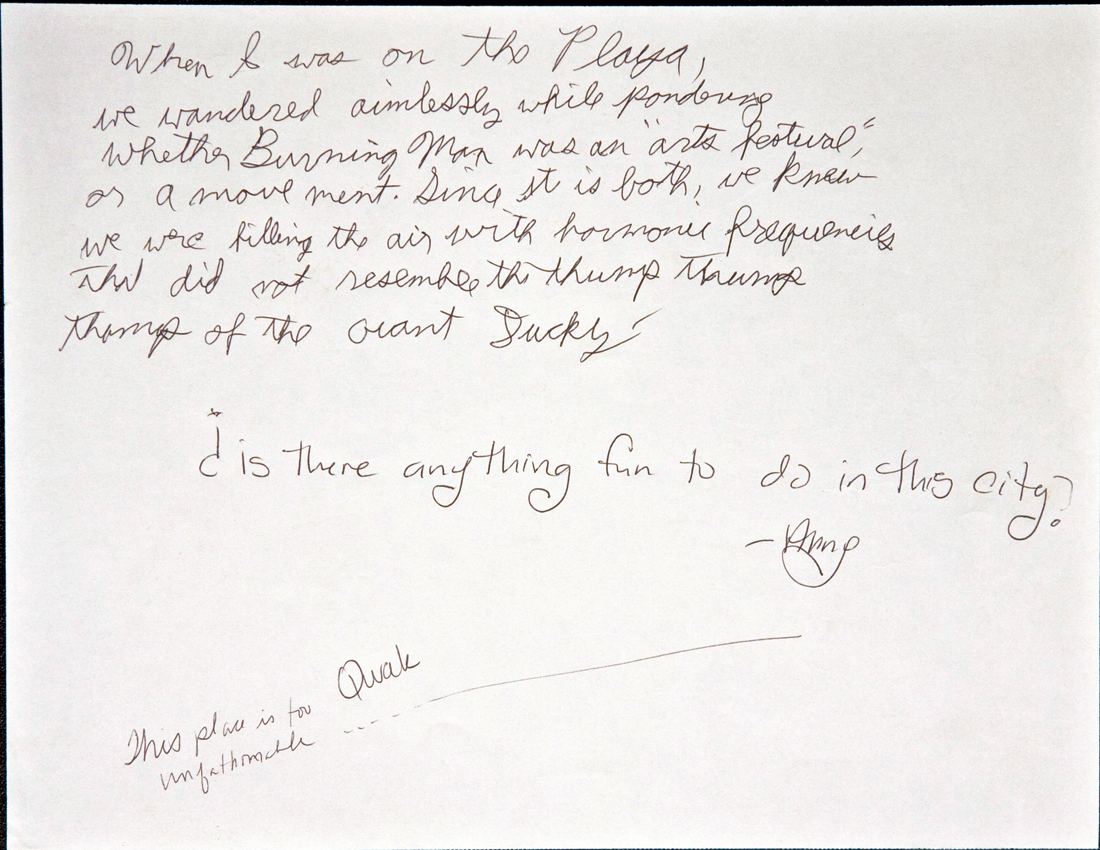 When I was on the Playa,
we wandered aimlessly while pondering
whether Burning Man was an "arts festival,"
or a movement. Since it is both, we knew
we were filling the air with harmonic frequencies
that did not resemble the thump thump
thump of the giant Ducky
¿is there anything fun to do in this city?
Quak
This place is too
unfathomable